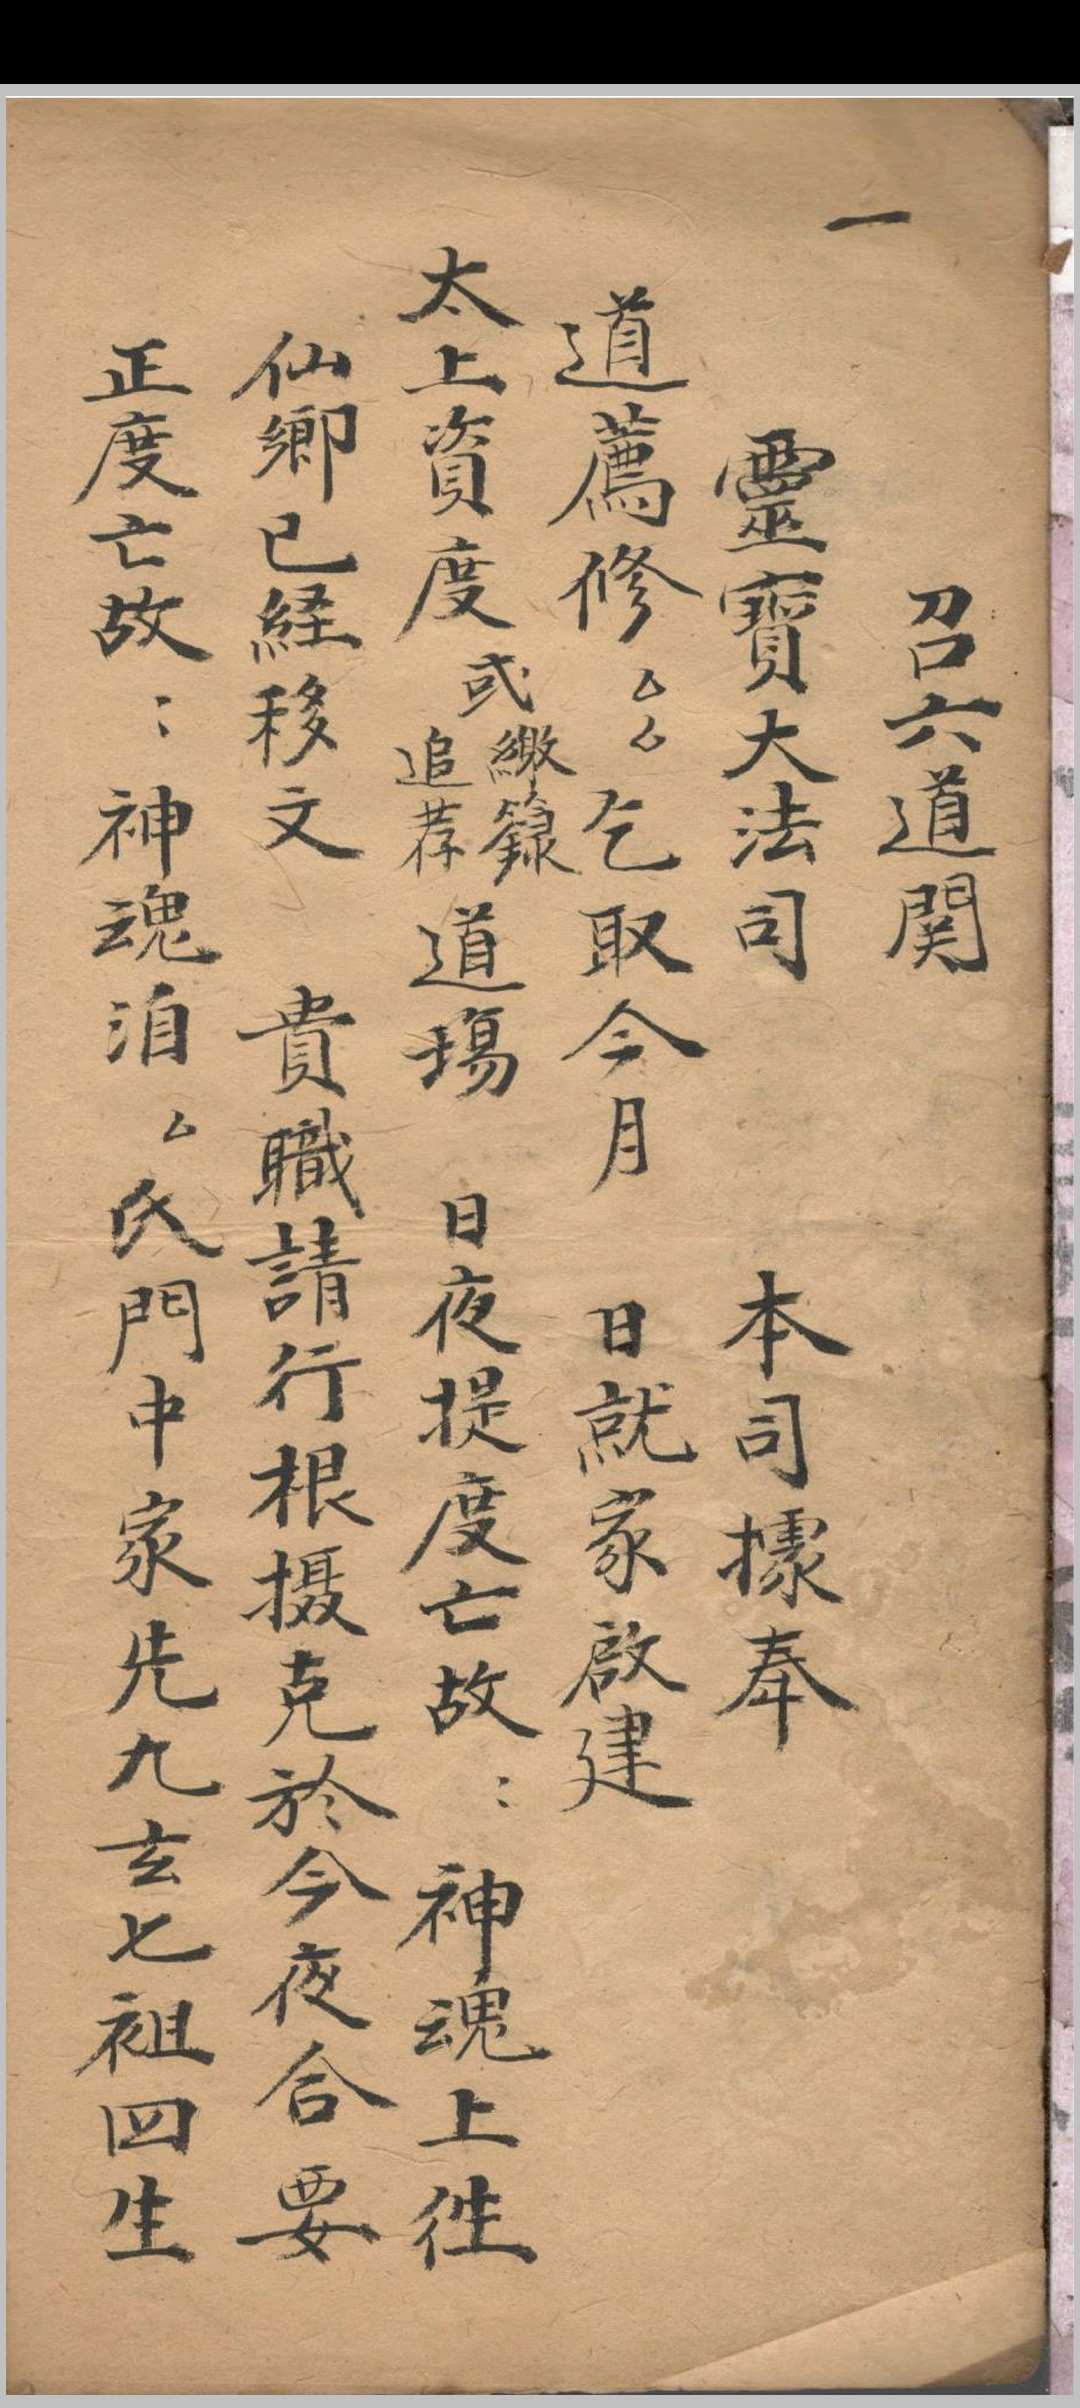 一
召六道関
靈寶大法司　本司據奉
道薦修厶厶乞取今月　日就家啟建
太上資度或繳籙追荐道場　日夜提度亡故：神魂上徃
仙鄉已経移文　貴職請行根摄克於今夜合要
正度亡故：神魂洎厶氏門中家先九玄七祖四生